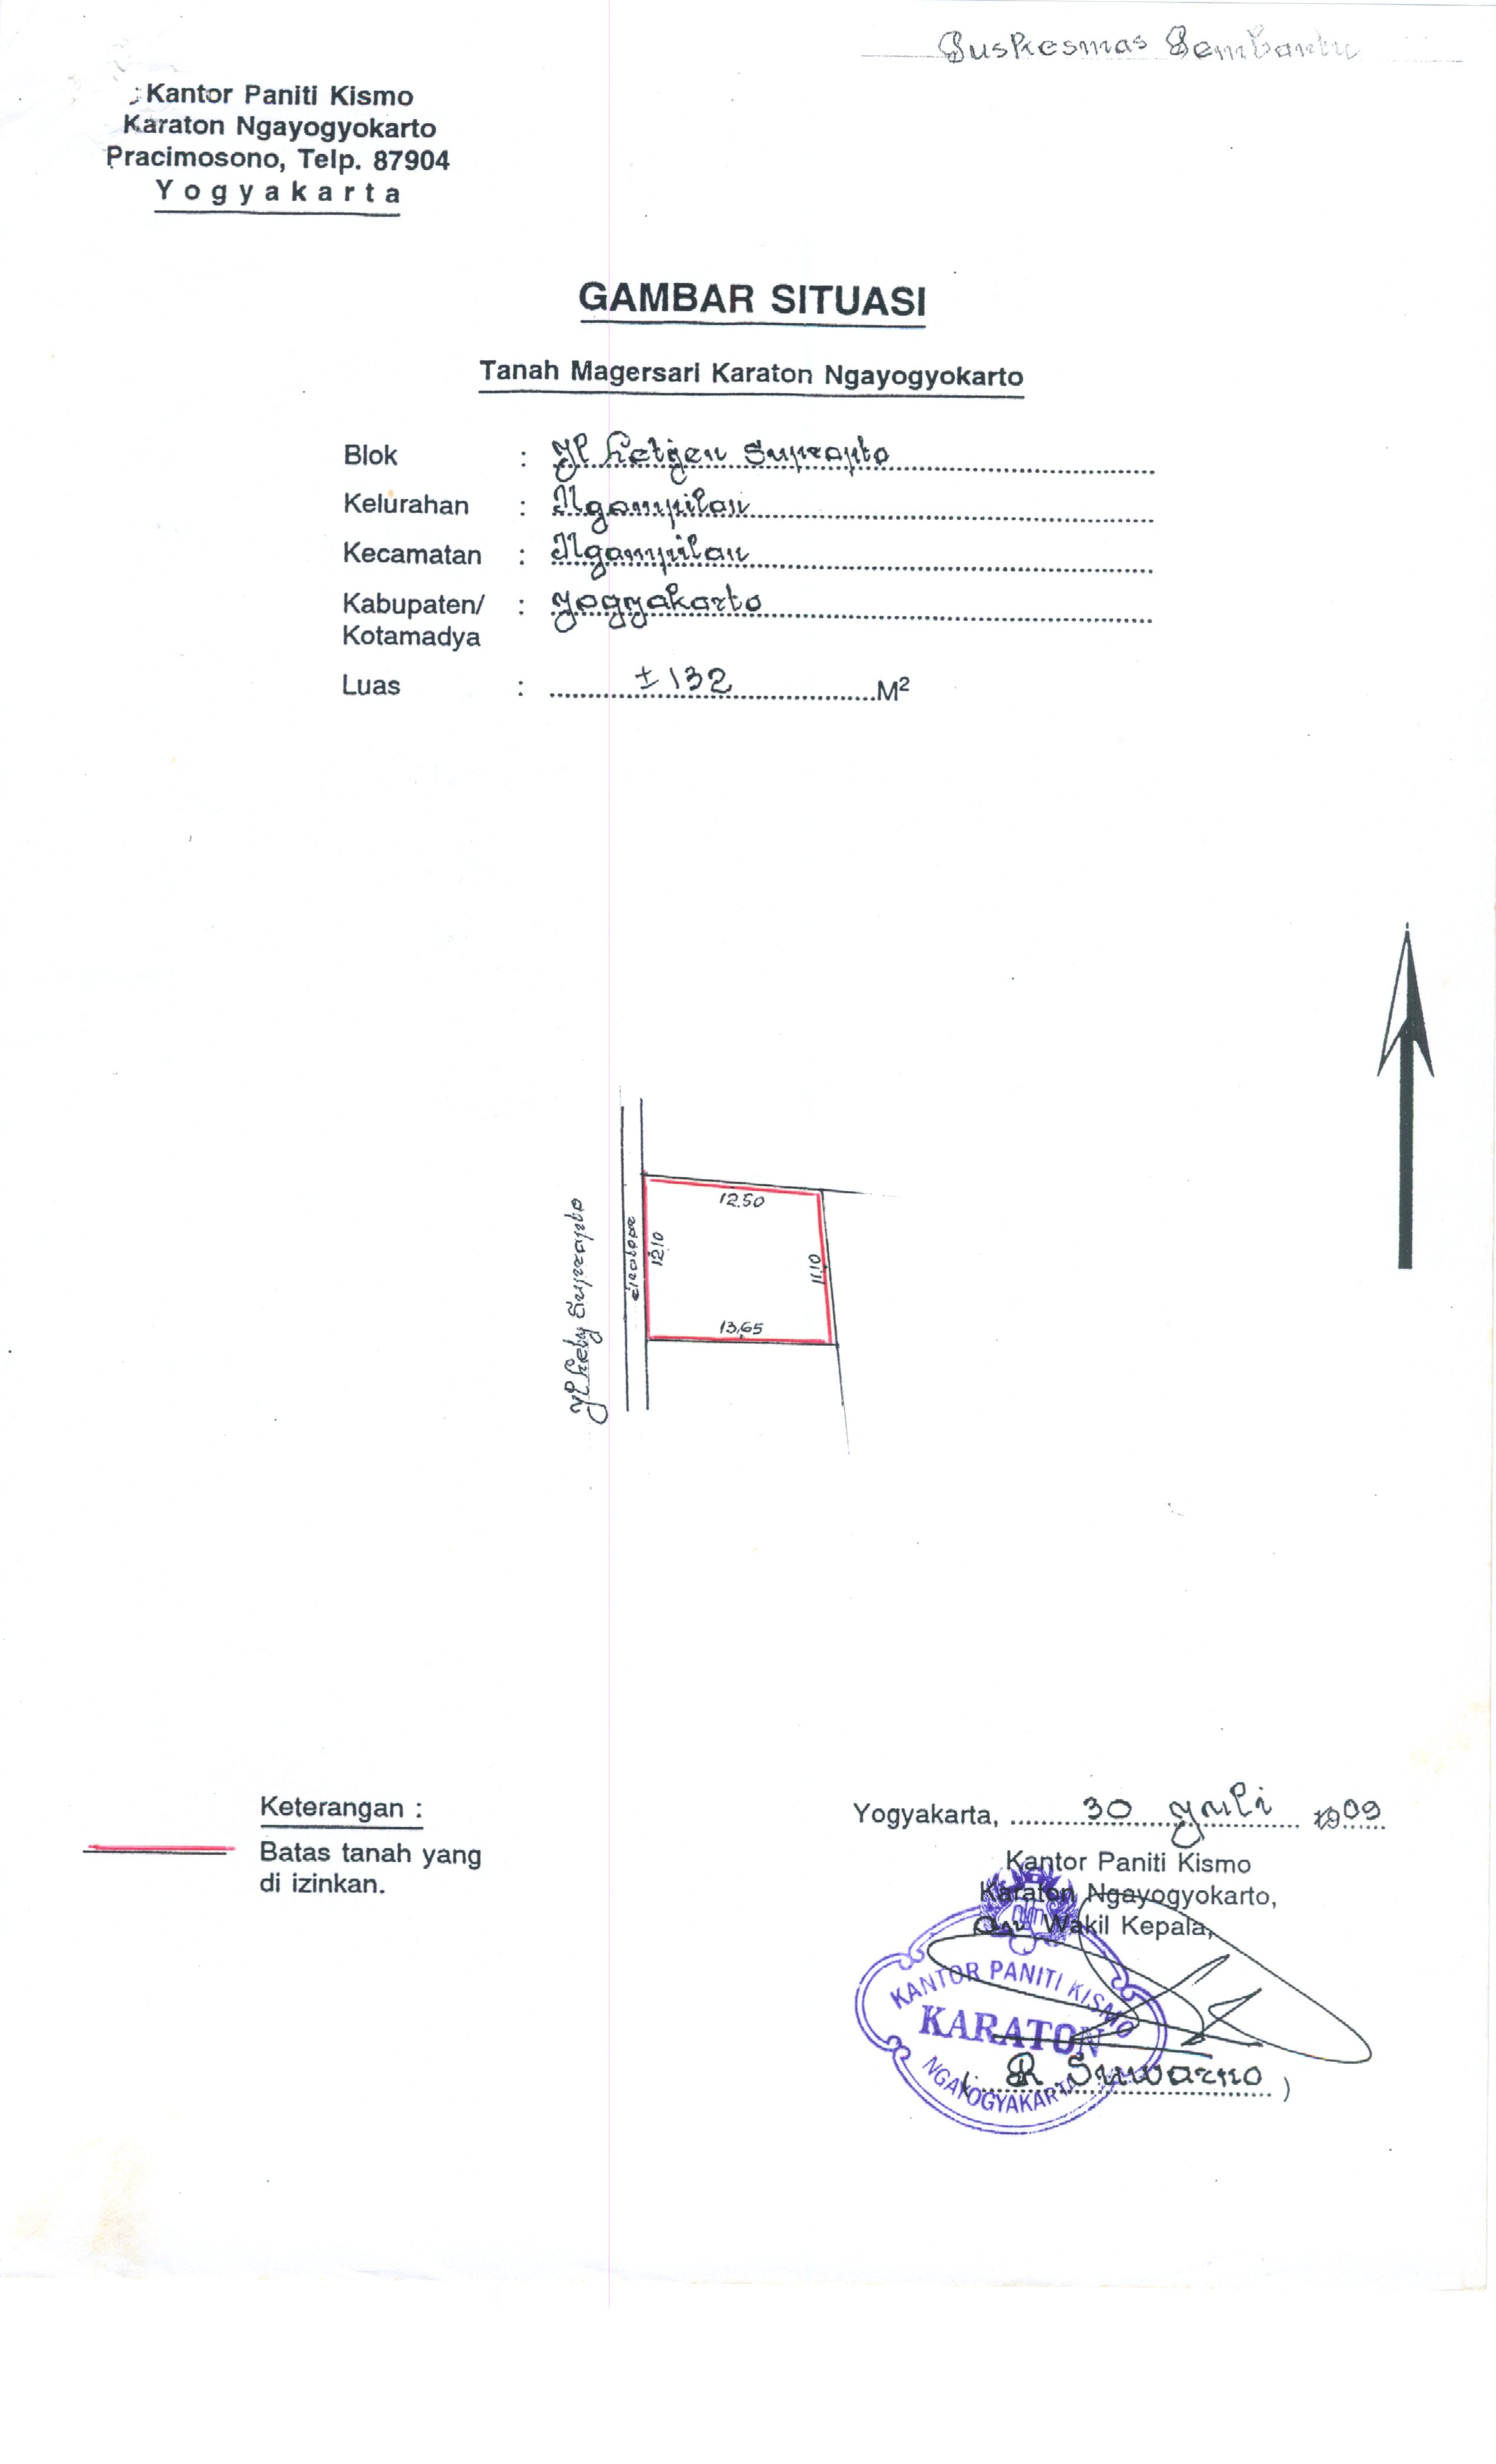 Puskesmas Pembantu
Kantor Paniti Kismo
Karaton Ngayogyokarto
Pracimosono, Telp. 87904
Yogyakarta
GAMBAR SITUASI
Tanah Magersari Karaton Ngayogyokarto
Blok : Jl Letjen Suprapto
Kelurahan : Ngampilan
Kecamatan : Ngampilan
Kabupaten/ : Yogyakarta
Kotamadya
Luas : ± 132 M²
12.50
12.10
11.10
13.65
Jl Letj Suprapto
Keterangan :
Batas tanah yang
di izinkan.
Yogyakarta, 30 Juli
Kantor Paniti Kismo
Karaton Ngayogyokarto,
Wakil Kepala,
KANTOR PANITI KISMO
KARATON
NGAYOGYAKARTA
( R. Suwarno )